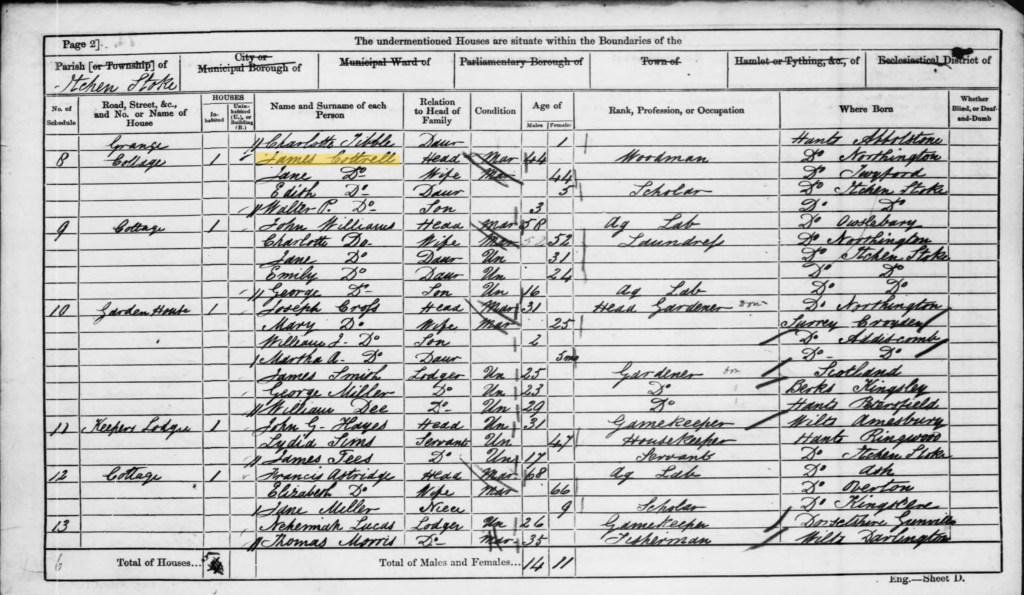 Page 2]
The undermentioned Houses are situate within the Boundaries of the
Parish [or Township] of City or Municipal Borough of Municipal Ward of Parliamentary Borough of Town of Hamlet or Tything, &c., of Ecclesiastical District of
Itchen Stoke
No. of Schedule Road, Street, &c., and No. or Name of House HOUSES Inhabited Uninhabited (U.), or Building (B.) Name and Surname of each Person Relation to Head of Family Condition Age of Males Females Rank, Profession, or Occupation Where Born Whether Blind, or Deaf-and-Dumb
Grange Charlotte Tibble Daur 1 Hants Abbotstone
8 Cottage 1 James Cottrell Head Mar 44 Woodman Do Northington
Jane Do Wife Mar 44 Do Twyford
Edith Do Daur 5 Scholar Do Itchen Stoke
Walter P. Do Son 3 Do Do
9 Cottage 1 John Williams Head Mar 58 Ag Lab Do Owslebury
Charlotte Do Wife Mar 52 Laundress Do Northington
Jane Do Daur Un 31 Do Itchen Stoke
Emily Do Daur Un 24 Do Do
George Do Son Un 16 Ag Lab Do Do
10 Garden House 1 Joseph Cross Head Mar 31 Head Gardener Do Northington
Mary Do Wife Mar 25 Surrey Croyden
William J. Do Son 2 Do Addiscomb
Martha A. Do Daur 5mo Do Do
James Smith Lodger Un 25 Gardener Scotland
George Miller Do Un 23 Do Berks Kingsley
William Dee Do Un 29 Do Hants
11 Keepers Lodge 1 John G. Hayes Head Un 31 Gamekeeper Wilts Amesbury
Lydia Sims Servant Un 47 Housekeeper Hants Ringwood
James Tees Do Un 17 Servant Do Itchen Stoke
12 Cottage 1 Francis Astridge Head Mar 68 Ag Lab Do Ash
Elizabeth Do Wife Mar 66 Do Overton
Jane Miller Niece 9 Scholar Do
13 Nehemiah Lucas Lodger Un 26 Gamekeeper Dorsetshire
Thomas Morris Do Mar 35 Fisherman Wilts Darlington
6 Total of Houses... 5 Total of Males and Females... 14 11
Eng.—Sheet D.